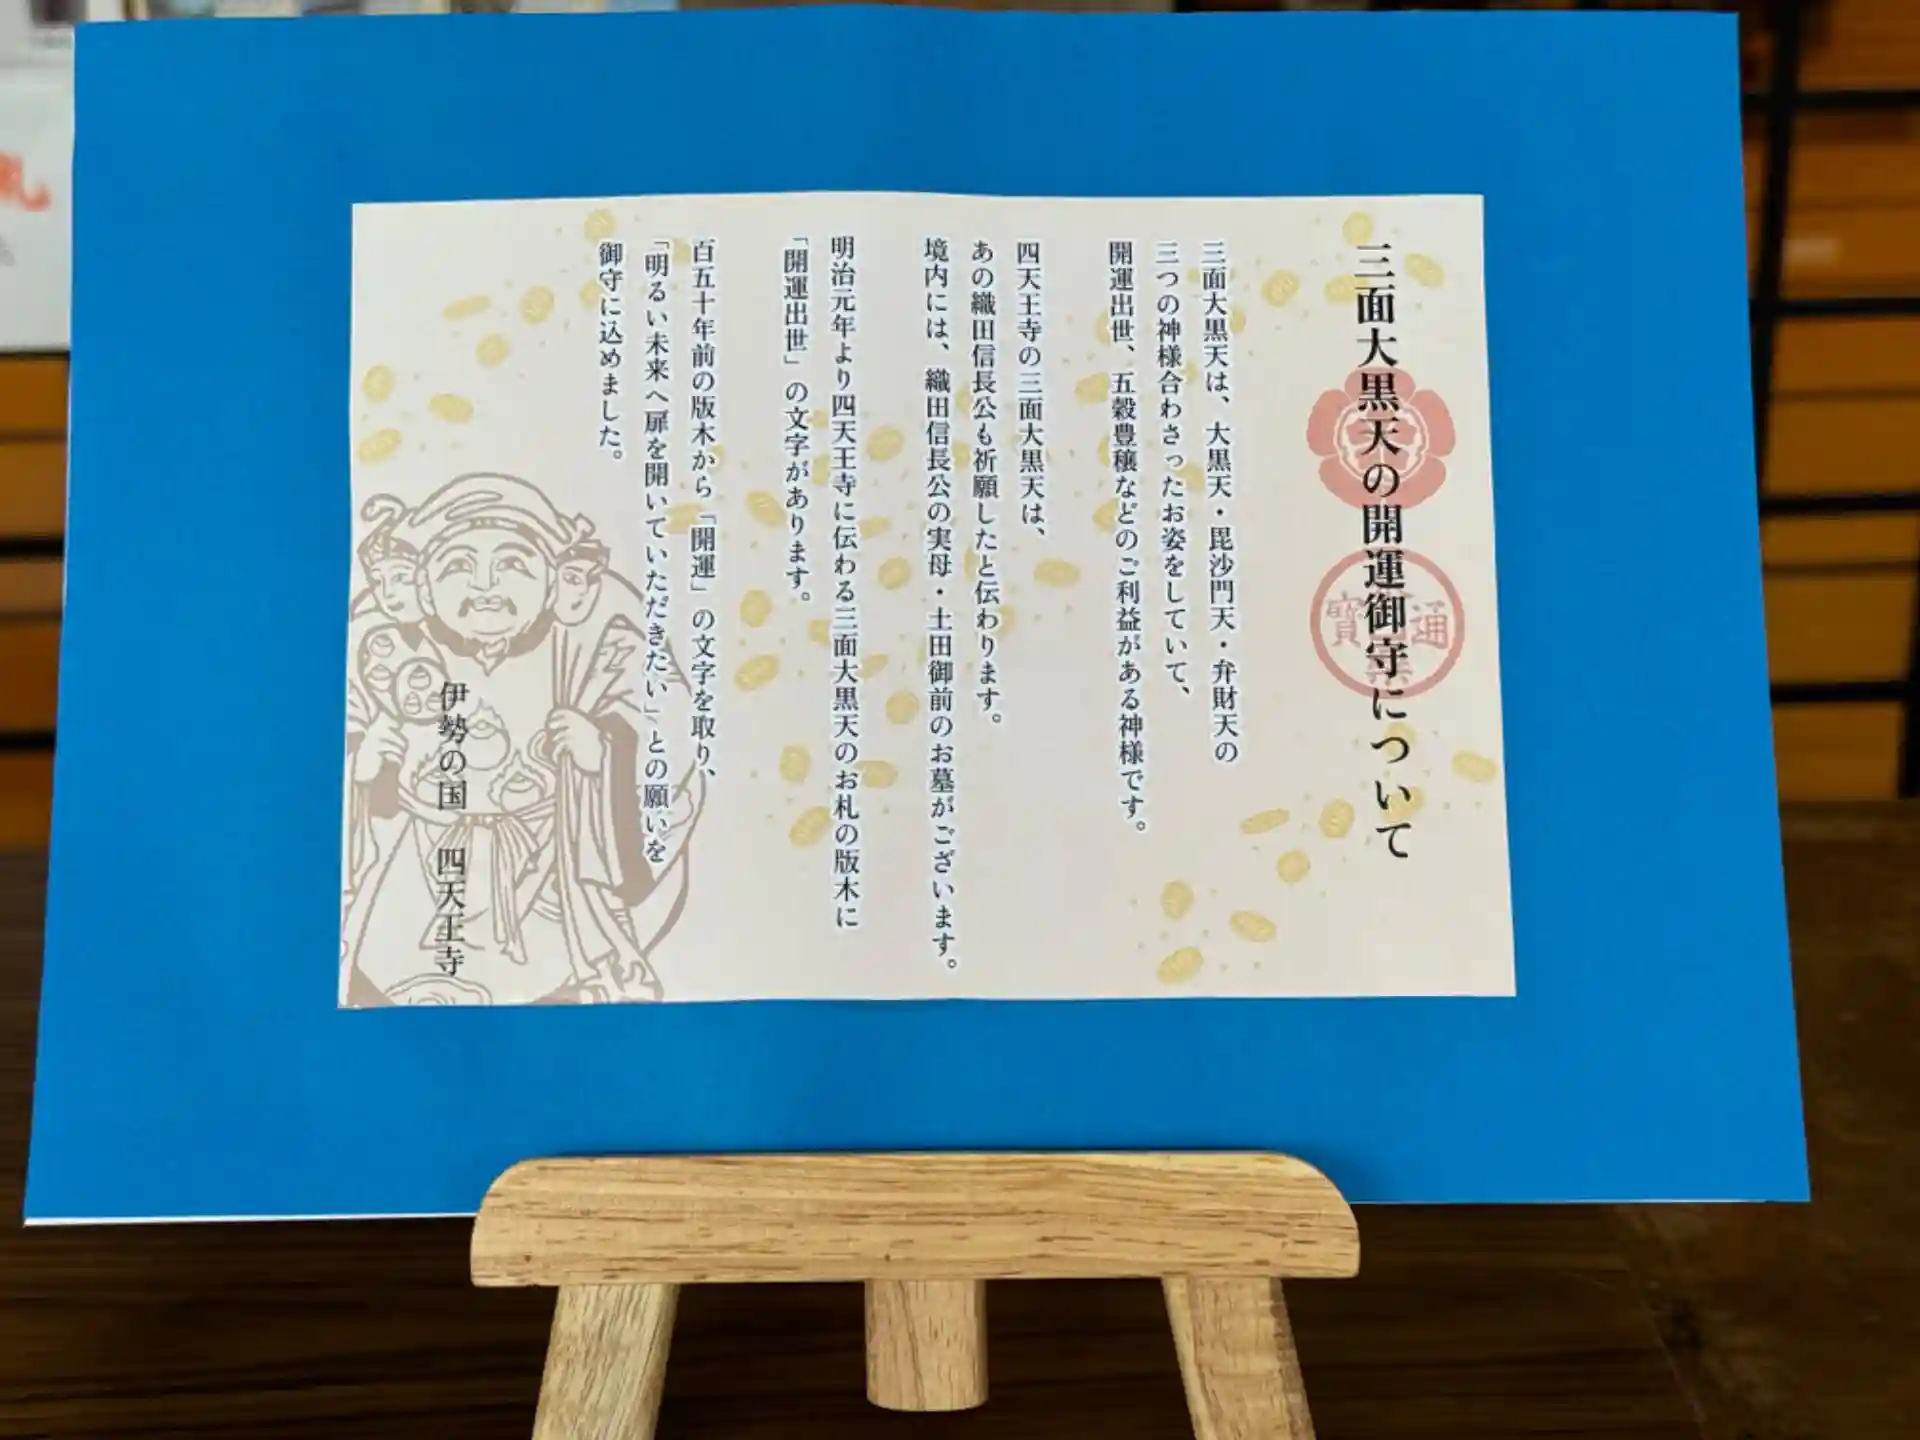 三面大黒天の開運御守について
三面大黒天は、大黒天・毘沙門天・弁財天の
三つの神様合わさったお姿をしていて、
開運出世、五穀豊穣などのご利益がある神様です。
四天王寺の三面大黒天は、
あの織田信長公も祈願したと伝わります。
境内には、織田信長公の実母・土田御前のお墓がございます。
明治元年より四天王寺に伝わる三面大黒天のお札の版木に
「開運出世」の文字があります。
百五十年前の版木から「開運」の文字を取り、
「明るい未来へ扉を開いていただきたい」との願いを
御守に込めました。
伊勢の国　四天王寺
通
寳
札